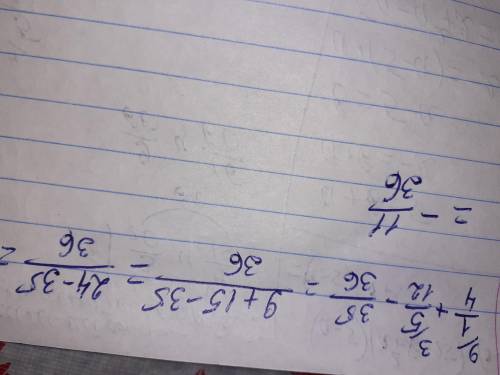 9/ 1/4 + 3/ 5/12 - 35/36 = (9+15-35)/36 = (24-35)/36 =
= - 11/36